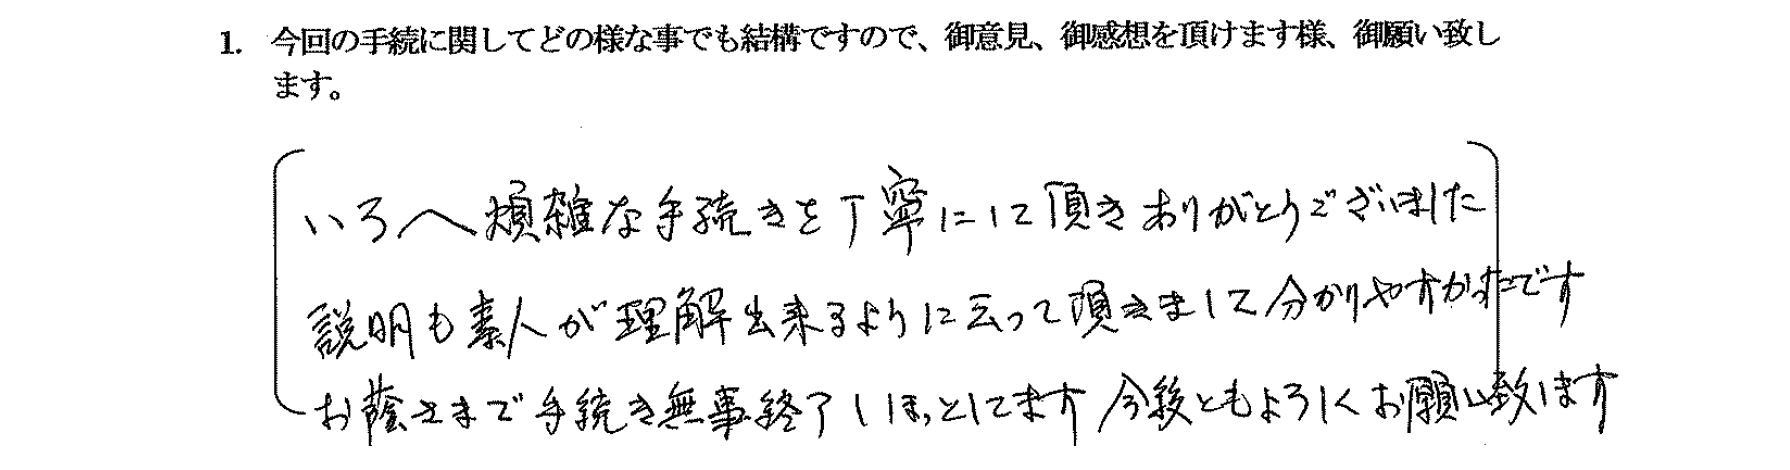 1. 今回の手続に関してどの様な事でも結構ですので、御意見、御感想を頂けます様、御願い致し
ます。
いろ〱煩雑な手続きを丁寧にして頂きありがとうございました
説明も素人が理解出来るように云って頂きまして分かりやすかったです
お蔭さまで手続き無事終了しほっとしてます 今後ともよろしくお願い致します